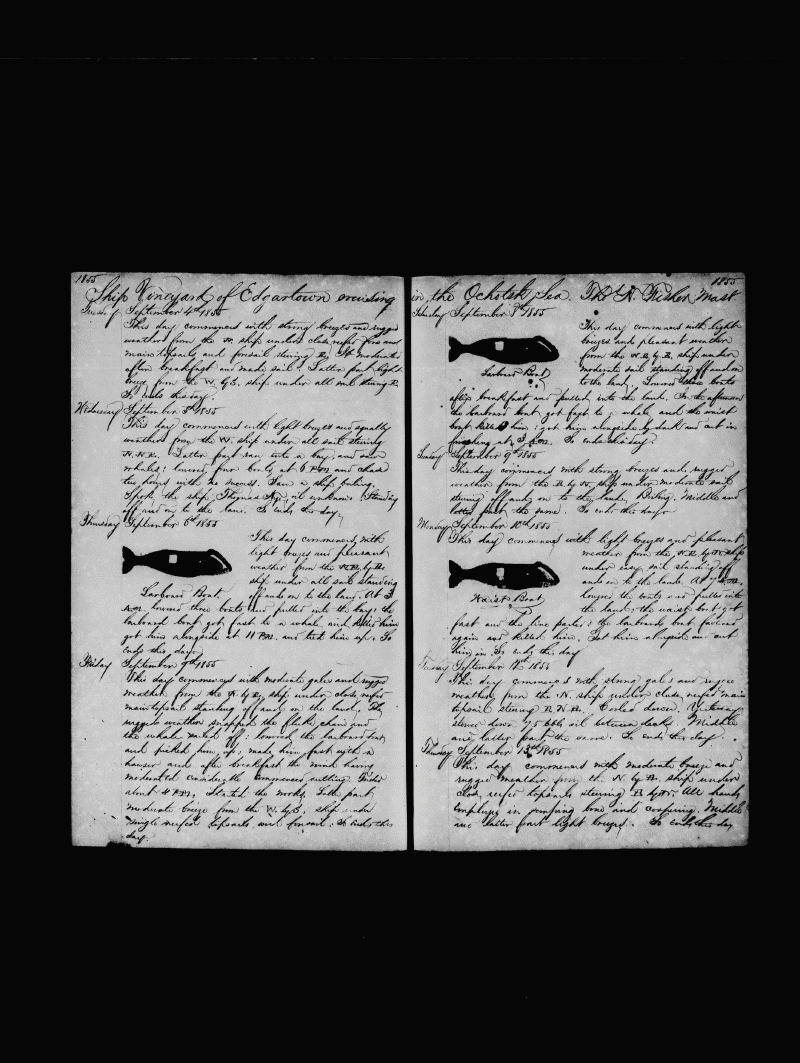 1855
Ship Vineyard of Edgartown cruising
Tuesday September 4th 1855
This day commences with strong breezes and rugged
weather from the N. ship under close reefed fore and
main topsails and foresail steering
after breakfast and made sail. Latter part light
breeze from the W. by S. ship under all sail steering
So ends this day
Wednesday September 5th 1855
This day commences with light breezes and squally
weather from the W. ship under all sail steering
Latter part ran into a bay and saw
whales: lowered four boats at 6 A.M. and chase
two hours with no success. Saw a ship boiling.
Spoke the ship Thomas Standing
off and on to the land. So ends this day
Thursday September 6th 1855
This day commences with
light breezes and pleasant
weather from the
ship under all sail standing
off and on to the land. At 3
Larboard Boat
lowered three boats and pulled into the bay: the
larboard boat got fast to a whale and killed him
got him alongside at 11 P.M. and took him up. So
ends this day
Friday September 7th 1855
This day commences with moderate gales and rugged
weather from the ship under close reefed
main topsail standing off and on the land. The
rugged weather snapped the fluke chain and
the whale went off: lowered the larboard boat
and picked him up; made him fast with a
hawser and after breakfast the wind having
moderated commenced cutting. Finished
about 4 P.M. Started the works. Latter part
moderate breeze from the W. by S. ship under
single reefed topsails and foresail. So ends this
day.
1855
in the Ochotsk Sea. Fisher Mast
Saturday September 8th 1855
This day commences with light
breezes and pleasant weather
from the ship under
moderate sail standing off and on
Larboard Boat
to the land. Lowered three boats
after breakfast and pulled into the land. In the afternoon
the larboard boat got fast to a whale and the waist
boat killed him: got him alongside by dark and cut in
finishing at So ends this day
Sunday September 9th 1855
This day commences with strong breezes and rugged
weather from the ship under moderate sail
steering off and on to the land. Boiling. Middle and
latter part the same. So ends this day
Monday September 10th 1855
This day commences with light breezes and pleasant
weather from the ship
under easy sail standing off
and on to the land. At
lowered the boats and pulled into
Waist Boat
the land: the waist boat got
fast and the line parted: the larboard boat fastened
again and killed him. Got him alongside and cut
him in. So ends this day
Tuesday September 12th 1855
This day commences with strong gales and rugged
weather from the N. ship under close reefed main
topsail steering Cooled down. Yesterday
stowed down 75 bbls oil between decks. Middle
and latter part the same. So ends this day.
Thursday September 13th 1855
This day commences with moderate breeze and
rugged weather from the ship under
close reefed topsails steering All hands
employed in bone and coopering. Middle
and latter part light breezes. So ends this day